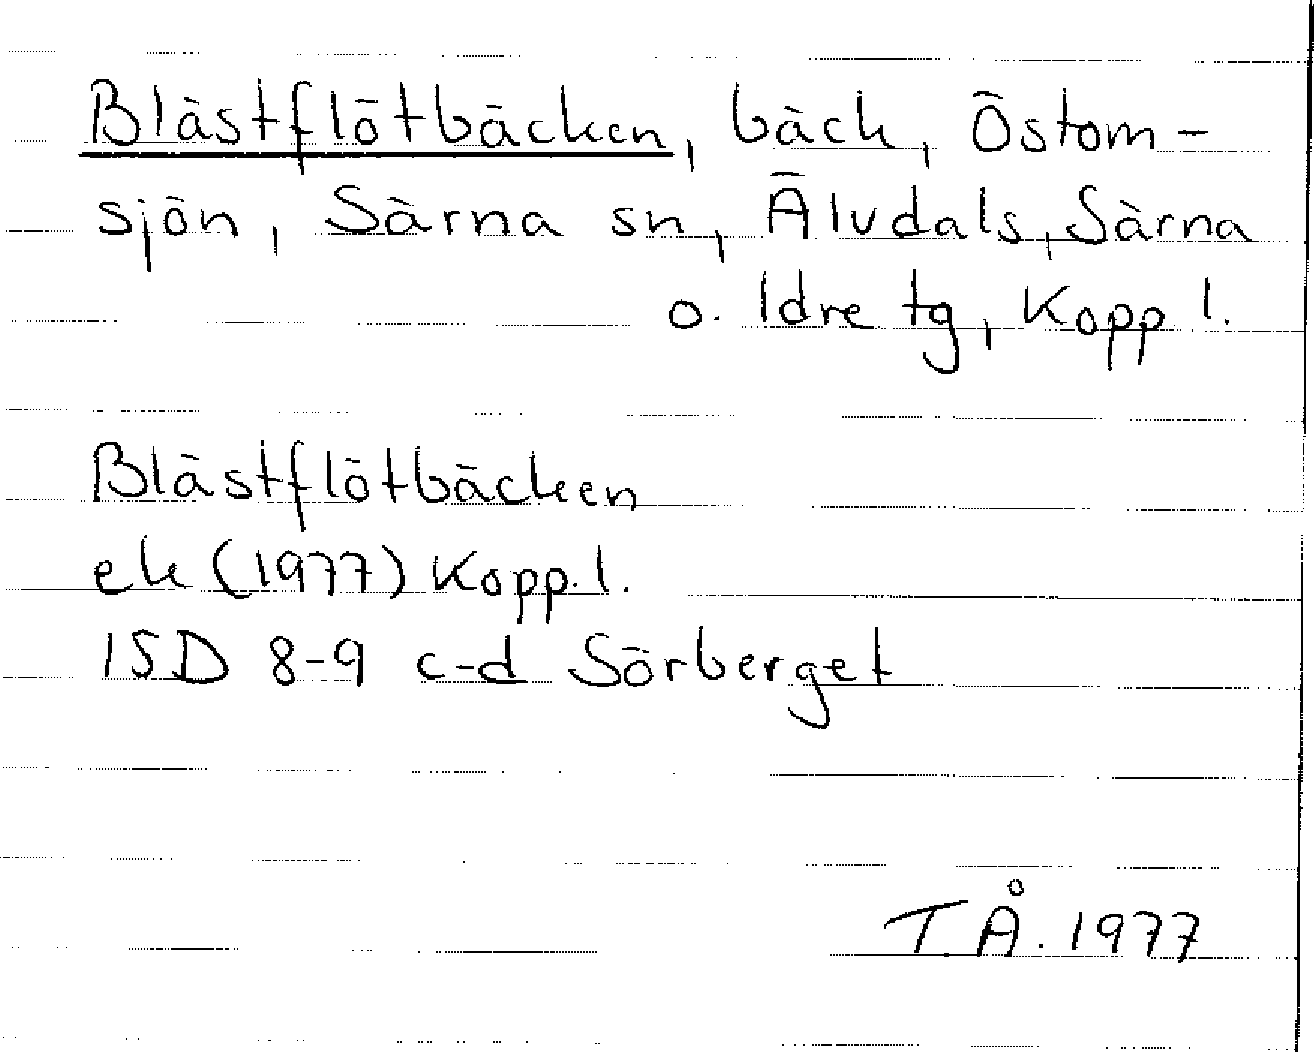 Blästflötbäcken, bäck, Östom-
sjön, Särna sn, Älvdals, Särna
o. Idre tg, Kopp l.
Blästflötbäcken
ek (1977) Kopp. l.
15D 8-9 c-d Sörberget
T.Å. 1977